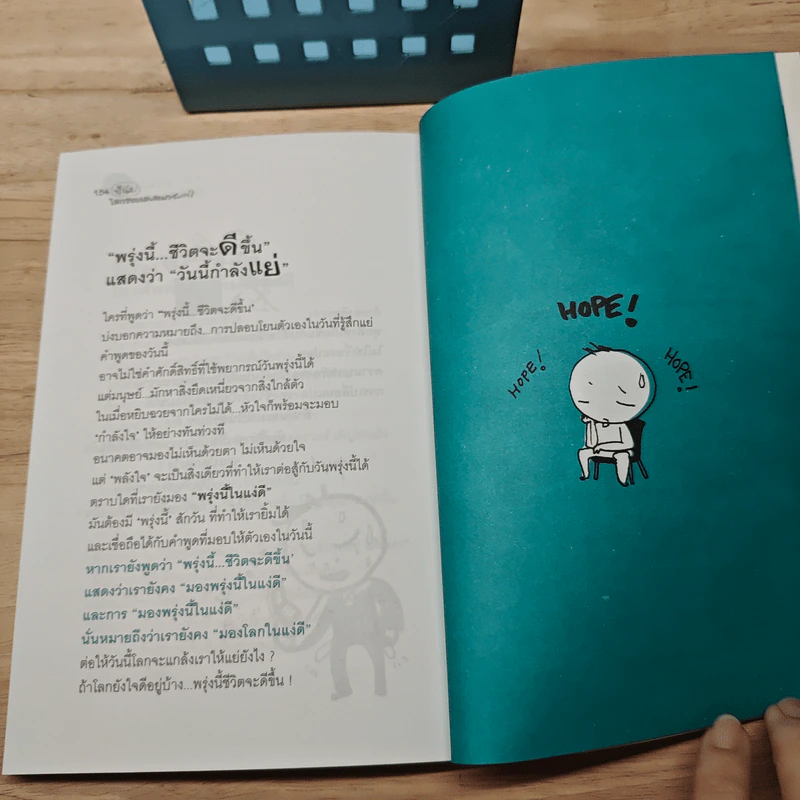 154
"พรุ่งนี้...ชีวิตจะดีขึ้น"
แสดงว่า "วันนี้กำลังแย่"
ใครที่พูดว่า "พรุ่งนี้...ชีวิตจะดีขึ้น"
บ่งบอกความหมายถึง...การปลอบโยนตัวเองในวันที่รู้สึกแย่
คำพูดของวันนี้
อาจไม่ใช่คำศักดิ์สิทธิ์ที่ใช้พยากรณ์วันพรุ่งนี้ได้
แต่มนุษย์...มักหาสิ่งยึดเหนี่ยวจากสิ่งใกล้ตัว
ในเมื่อหยิบฉวยจากใครไม่ได้...หัวใจก็พร้อมจะมอบ
'กำลังใจ' ให้อย่างทันท่วงที
อนาคตอาจมองไม่เห็นด้วยตา ไม่เห็นด้วยใจ
แต่ 'พลังใจ' จะเป็นสิ่งเดียวที่ทำให้เราต่อสู้กับวันพรุ่งนี้ได้
ตราบใดที่เรายังมอง "พรุ่งนี้ในแง่ดี"
มันต้องมี 'พรุ่งนี้' สักวัน ที่ทำให้เรายิ้มได้
และเชื่อถือได้กับคำพูดที่มอบให้ตัวเองในวันนี้
หากเรายังพูดว่า "พรุ่งนี้...ชีวิตจะดีขึ้น'
แสดงว่าเรายังคง "มองพรุ่งนี้ในแง่ดี"
และการ "มองพรุ่งนี้ในแง่ดี"
นั่นหมายถึงว่าเรายังคง "มองโลกในแง่ดี"
ต่อให้วันนี้โลกจะแกล้งเราให้แย่ยังไง ?
ถ้าโลกยังใจดีอยู่บ้าง...พรุ่งนี้ชีวิตจะดีขึ้น !
HOPE!
HOPE!
HOPE!